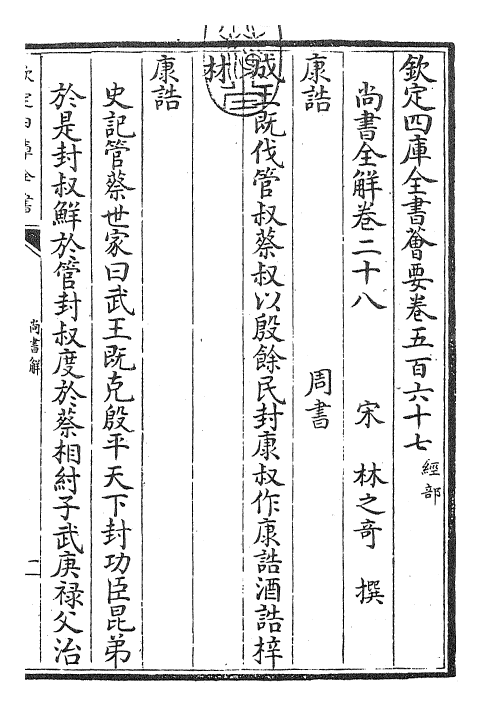 欽定四庫全書薈要卷五百六十七 經部
尚書全解卷二十八 宋 林之奇 撰
康誥 周書
成王既伐管叔蔡叔以殷餘民封康叔作康誥酒誥梓
材
康誥
史記管蔡世家曰武王既克殷平天下封功臣昆弟
於是封叔鮮於管封叔度於蔡相紂子武庚祿父治
欽定四庫全書
尚書解